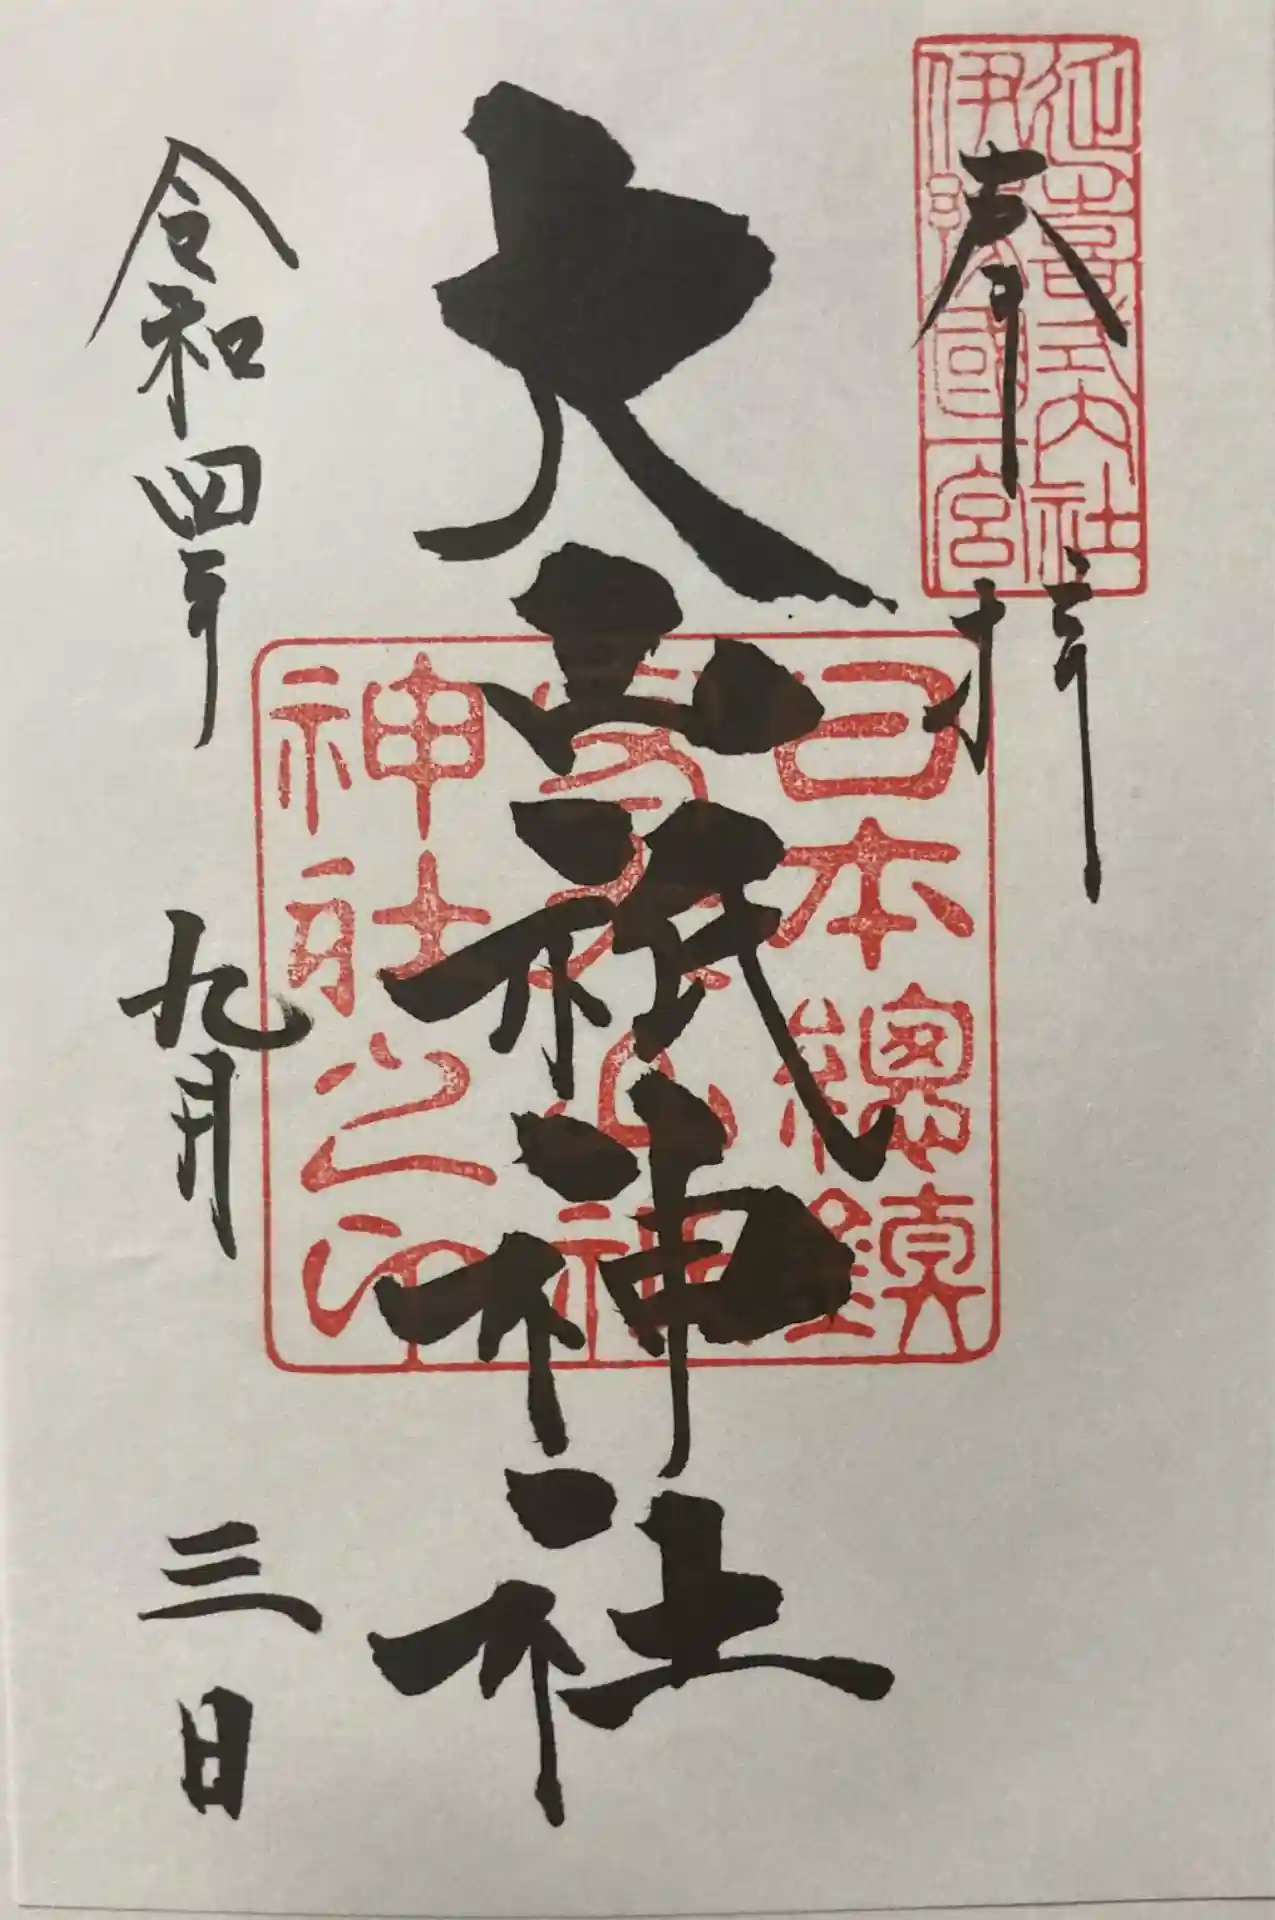 延喜式内社
伊豫國一宮
奉拝
日本總鎮
守大山祇
神社之印
大山祇神社
令和四年九月三日